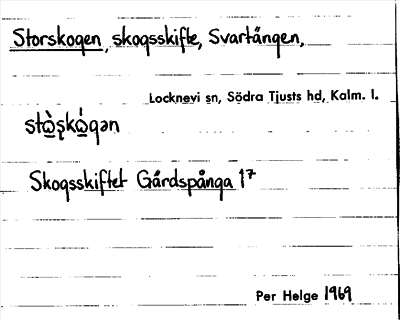 Storskogen, skogsskifte, Svartängen,
Locknevi sn, Södra Tjusts hd, Kalm. l.
stὼşkώgən
Skogsskiftet Gårdspånga 1⁷
Per Helge 1969